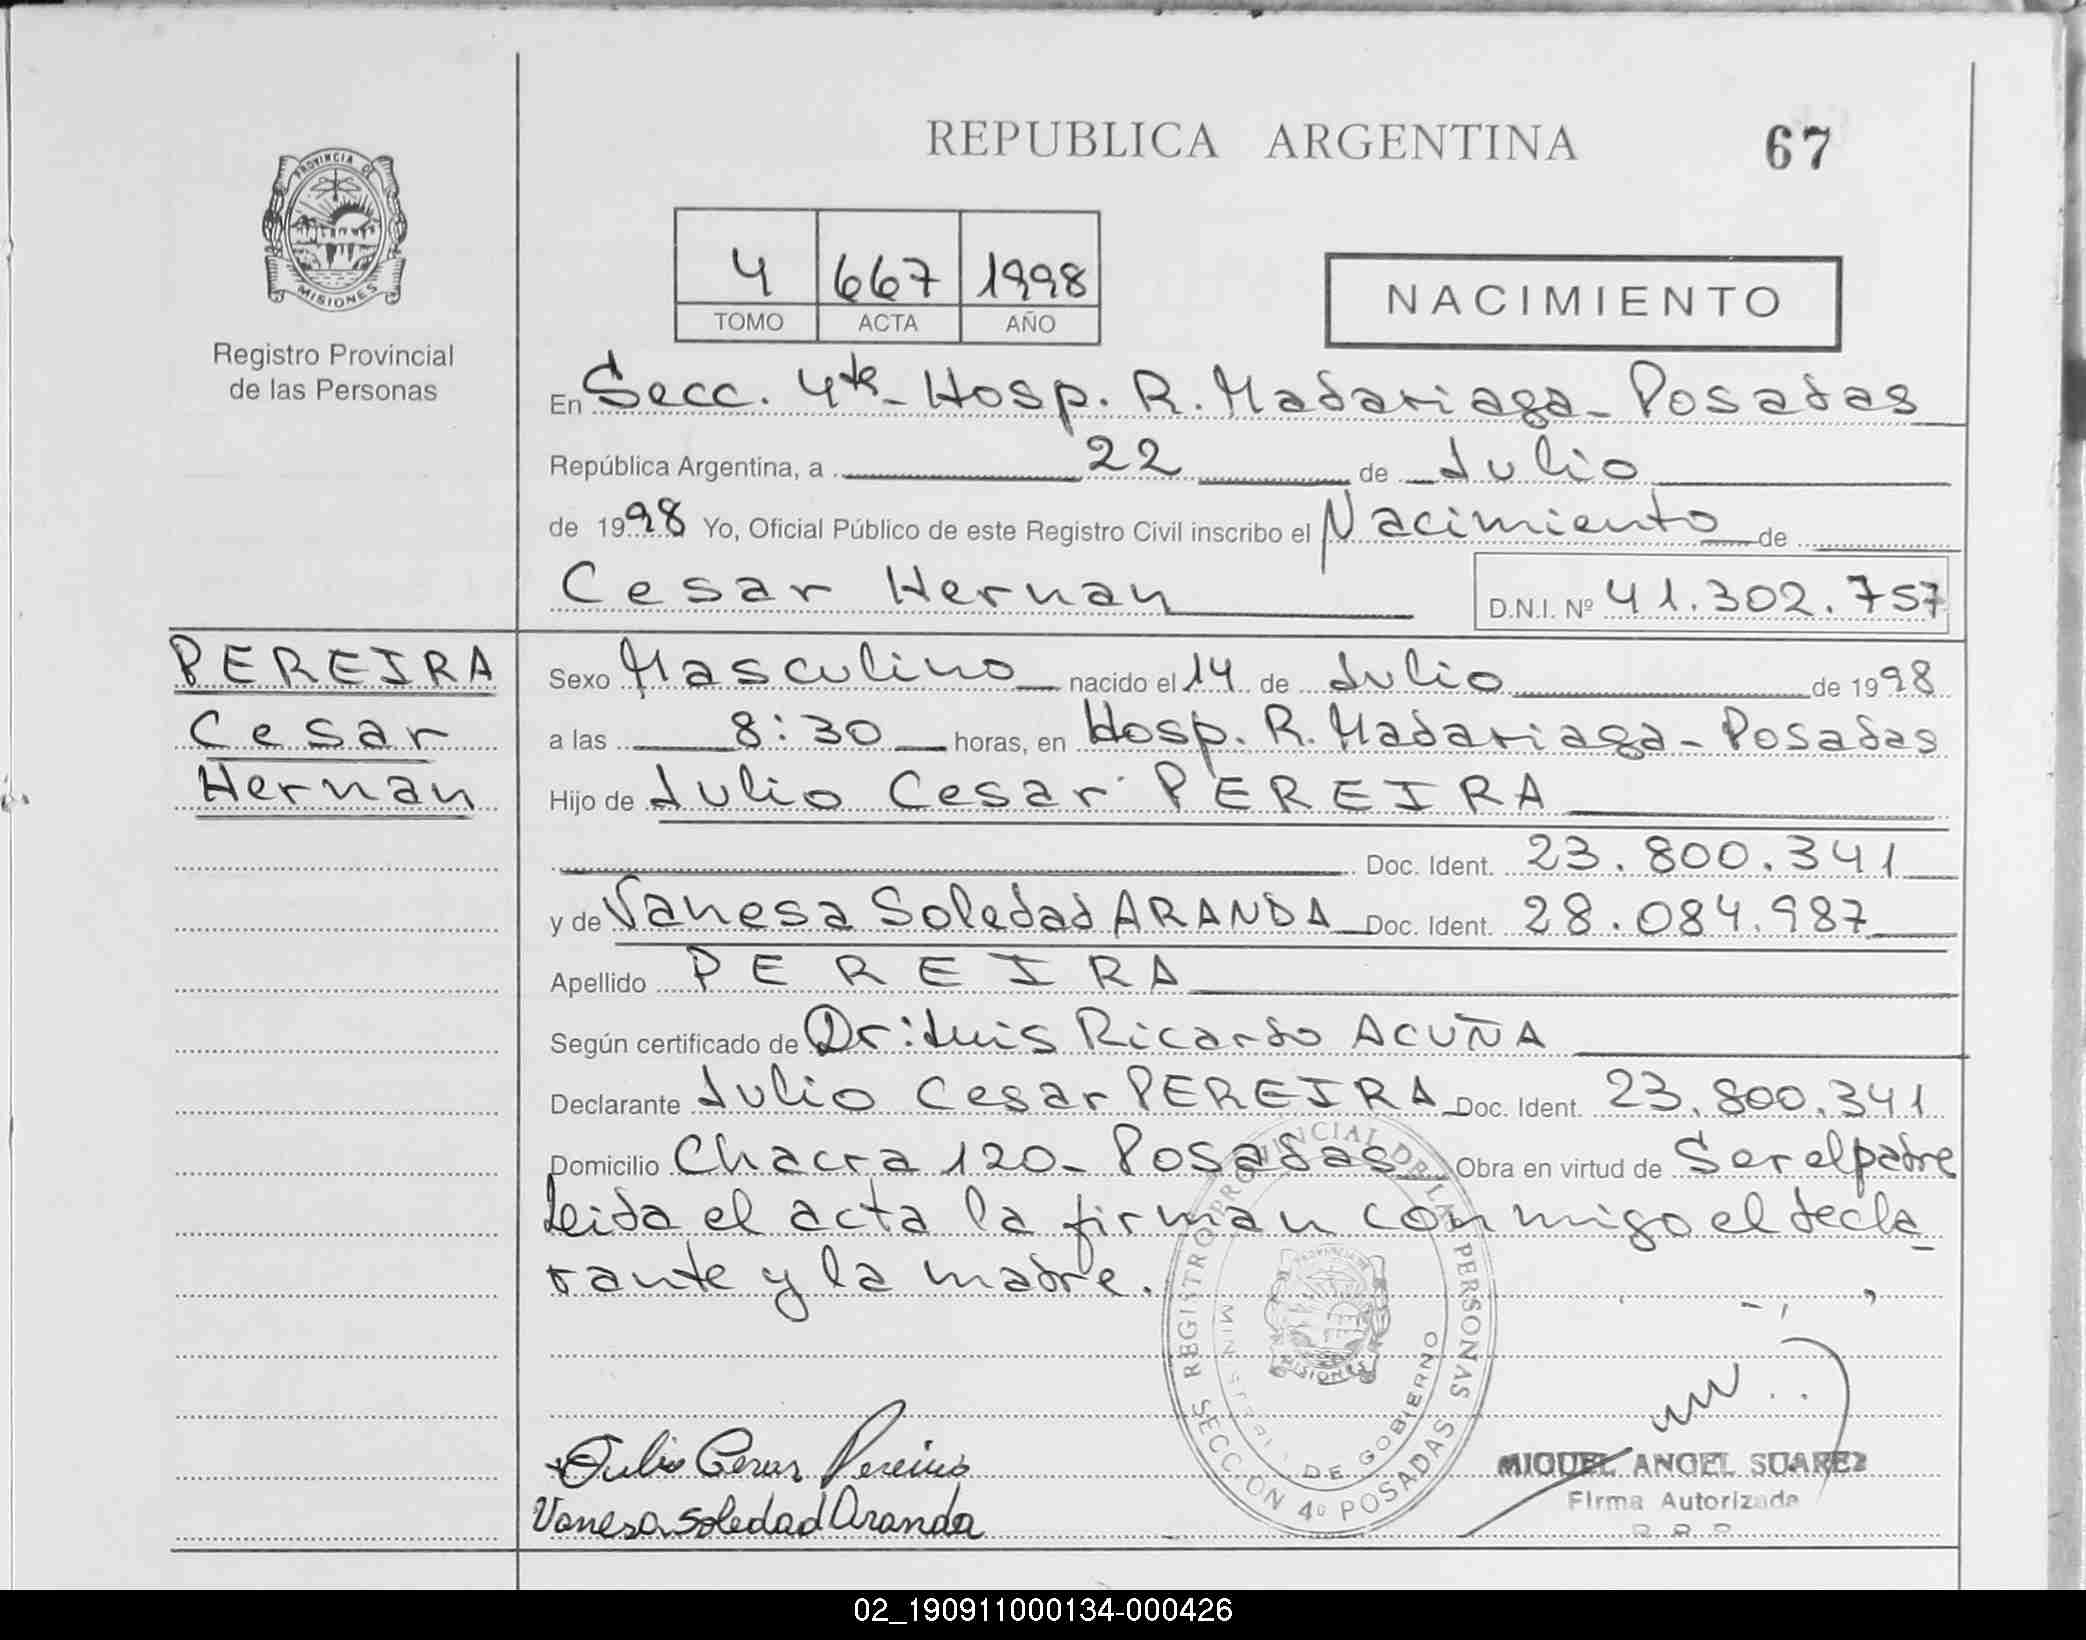 REPUBLICA ARGENTINA
67
PROVINCIA DE
MISIONES
Registro Provincial
de las Personas
4 667 1998
TOMO ACTA AÑO
NACIMIENTO
En Secc. 4ta - Hosp. R. Madariaga - Posadas
República Argentina, a 22 de Julio
de 1998 Yo, Oficial Público de este Registro Civil inscribo el Nacimiento de
Cesar Hernan D.N.I. Nº 41.302.757
PEREIRA
Cesar
Hernan
Sexo Masculino nacido el 14 de Julio de 1998
a las 8:30 horas, en Hosp. R. Madariaga - Posadas
Hijo de Julio Cesar PEREIRA
Doc. Ident. 23.800.341
y de Vanesa Soledad ARANDA Doc. Ident. 28.084.987
Apellido PEREIRA
Según certificado de Dr: Luis Ricardo ACUÑA
Declarante Julio Cesar PEREIRA Doc. Ident. 23.800.341
Domicilio Chacra 120 - Posadas Obra en virtud de Ser el padre
Leida el acta la firman conmigo el decla_
rante y la madre.
REGISTRO PROVINCIAL DE LAS PERSONAS
DE GOBIERNO
MISIONES
SECCION 4º POSADAS
Julio Cesar Pereira
Vanesa Soledad Aranda
MIGUEL ANGEL SUAREZ
Firma Autorizada
02_190911000134-000426